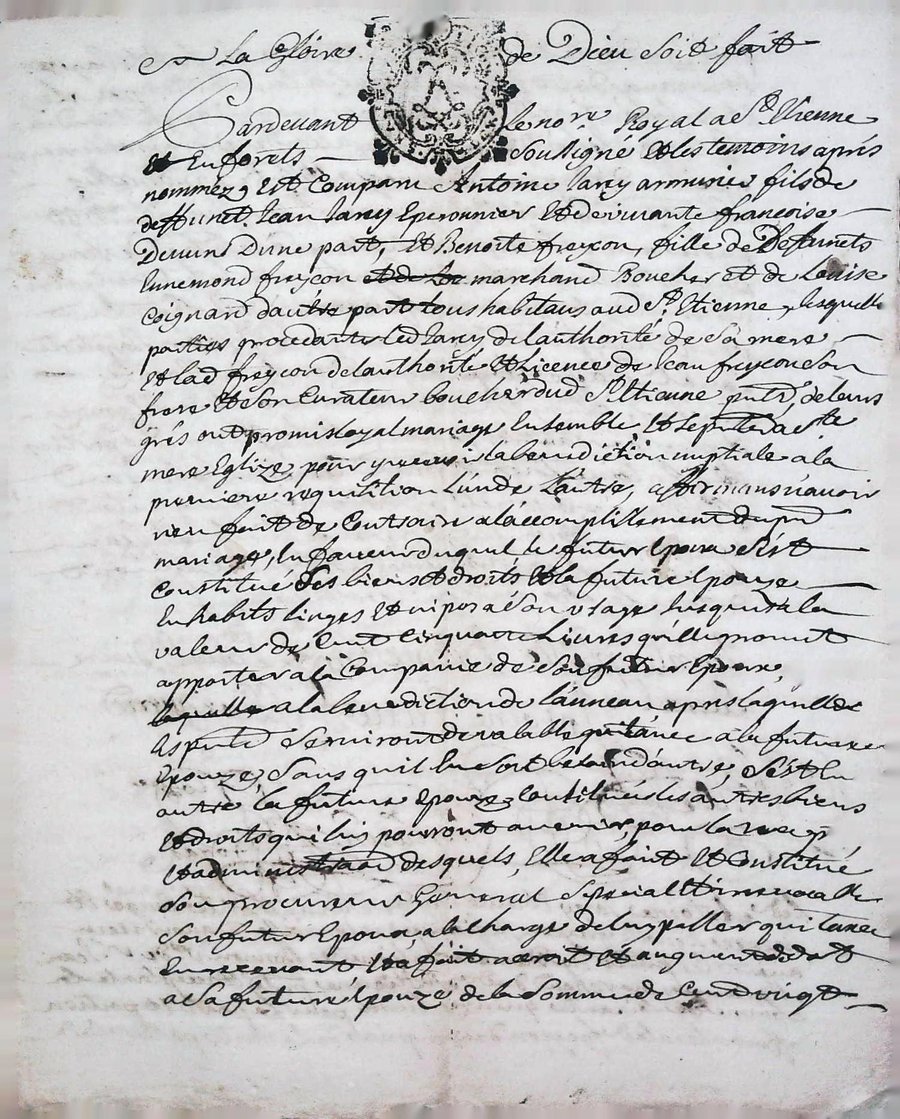 A La Gloire de Dieu soit fait
Pardevant le no.re Royal a S.t Etienne
Et En forets soussigné Et les temoins aprés
nommez, Est Comparu Antoine Jarey armurier fils de
deffunct Jean Jarey Eperonnier Et de vivante francoise
Devun D'une part, Et Benoite freycon, fille de Deffunets
Ennemond freycon et de Lo marchand Boucher et de Louise
Coignard d'autre part tous habitans aud S.t Etienne, lesquelle
parties procedants led Jarey de l'authorité de Sa mere
Et lad freycon de l'authorité Et Licence de Jean freycon Son
frere Et Son Curateur boucher dud S.t Etienne pnts, de leurs
grés ont promis loyal mariage Ensemble Et Se pnter a n.te
mere Eglize pour y recevoir la benediction nuptiale a la
premiere requisition L'un de L'autre, affirmans n'avoir
rien fait de Contraire a l'accomplissement du pnt
mariage, En faveur duquel le futur Epoux S'est
Constitué Ses biens Et droits Et la future Epouze
En habits linges Et nipes a Son usage Jusques a la
valeur de Cent Cinquante Livres qu'elle promet
apporter a la Compagnie de Son futur Epoux,
laquelle a la benediction de l'anneau apres laquelle
les pntes Serviront de valable quitance a la future
Epouze, Sans qu'il En soit besoin d'autre, S'est En
outre la future Epouze Constituée les autres biens
Et droits qui luy pourront avenir, pour la
Et administraon desquels, Elle a fait Et Constitué
Son procureur General Special Et irrevocable
Son futur Epoux a la charge de luy passer quitance
En recevant Et a fait acroit Et augment de dot
a Sa future Epouze de la Somme de Cent vingt